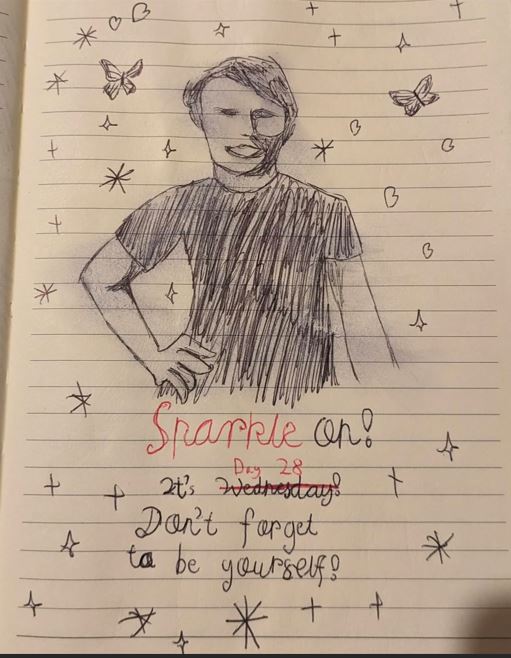 Sparkle on!
Day 28
It's Wednesday!
Don't forget
to be yourself!